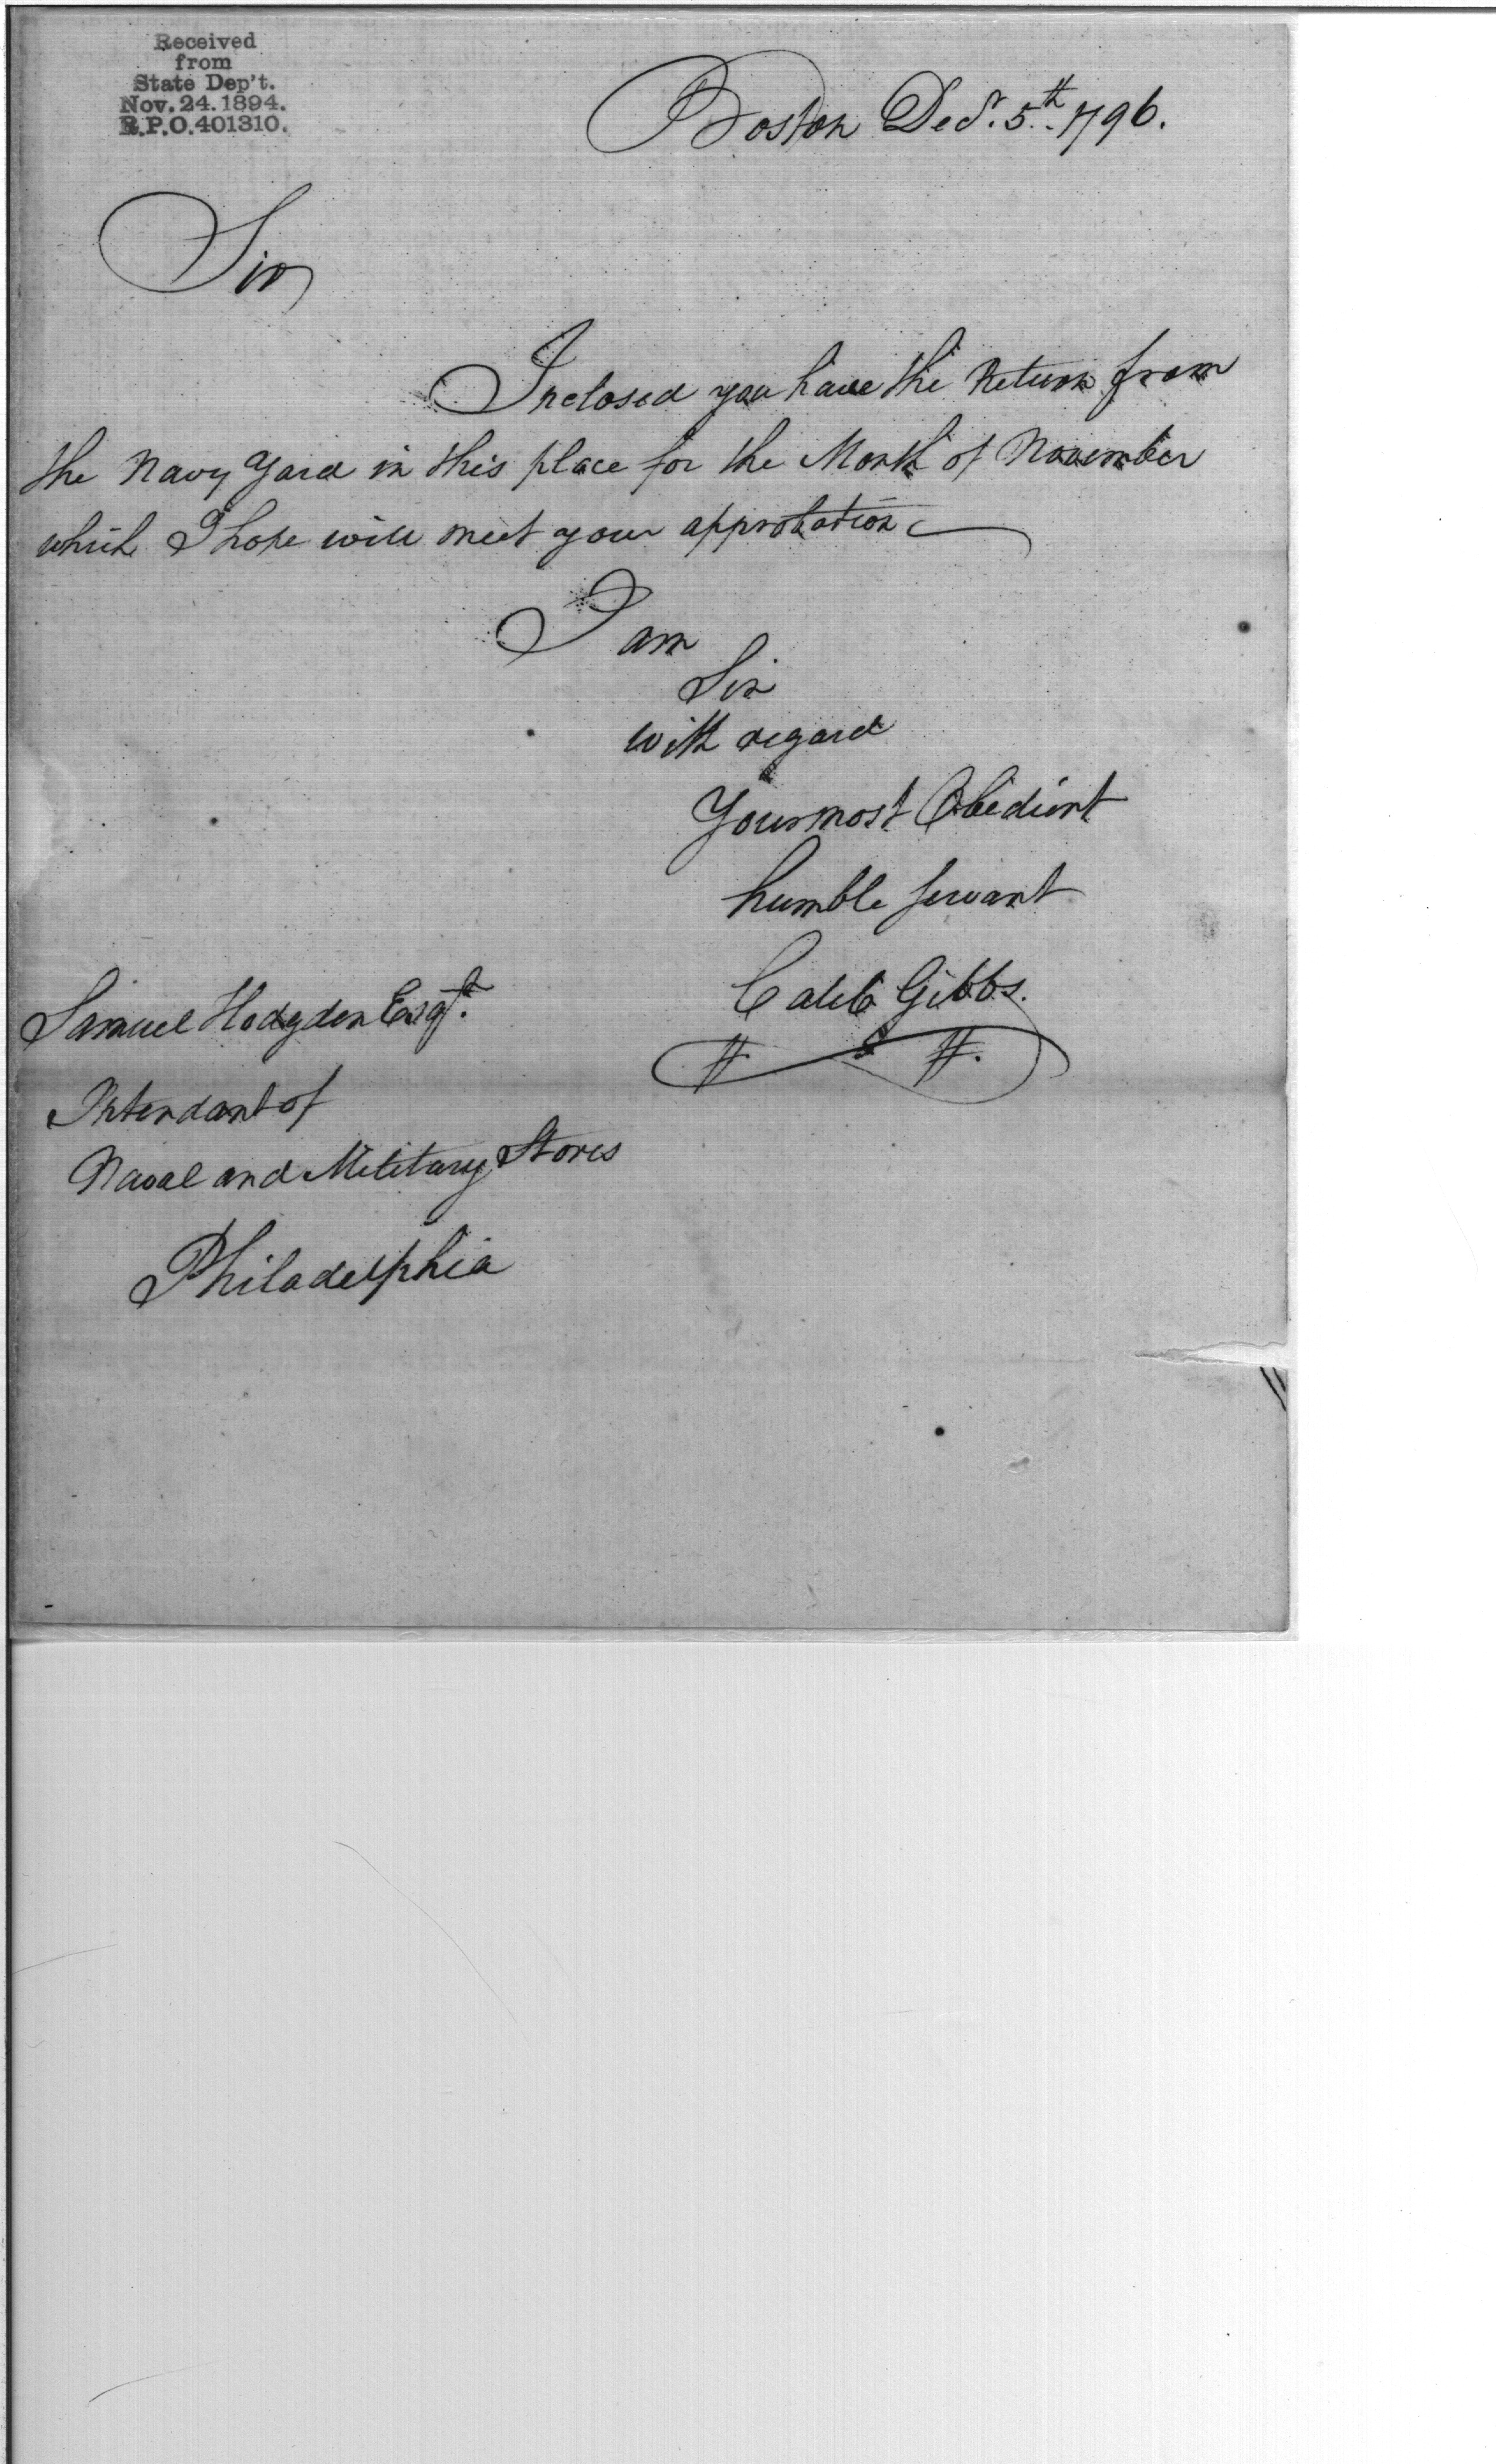 Received
from
State Dep't.
Nov. 24. 1894.
R.P.O. 401310.
Boston Decr. 5th. 1796.
Sir
Inclosed you have the Return from
the Navy Yard in this place for the Month of November
which I hope will meet your approbation
I am
Sir
with regard
Your most Obedient
humble servant
Caleb Gibbs.
Samuel Hodgdon Esqr.
Intendant of
Naval and Military Stores
Philadelphia